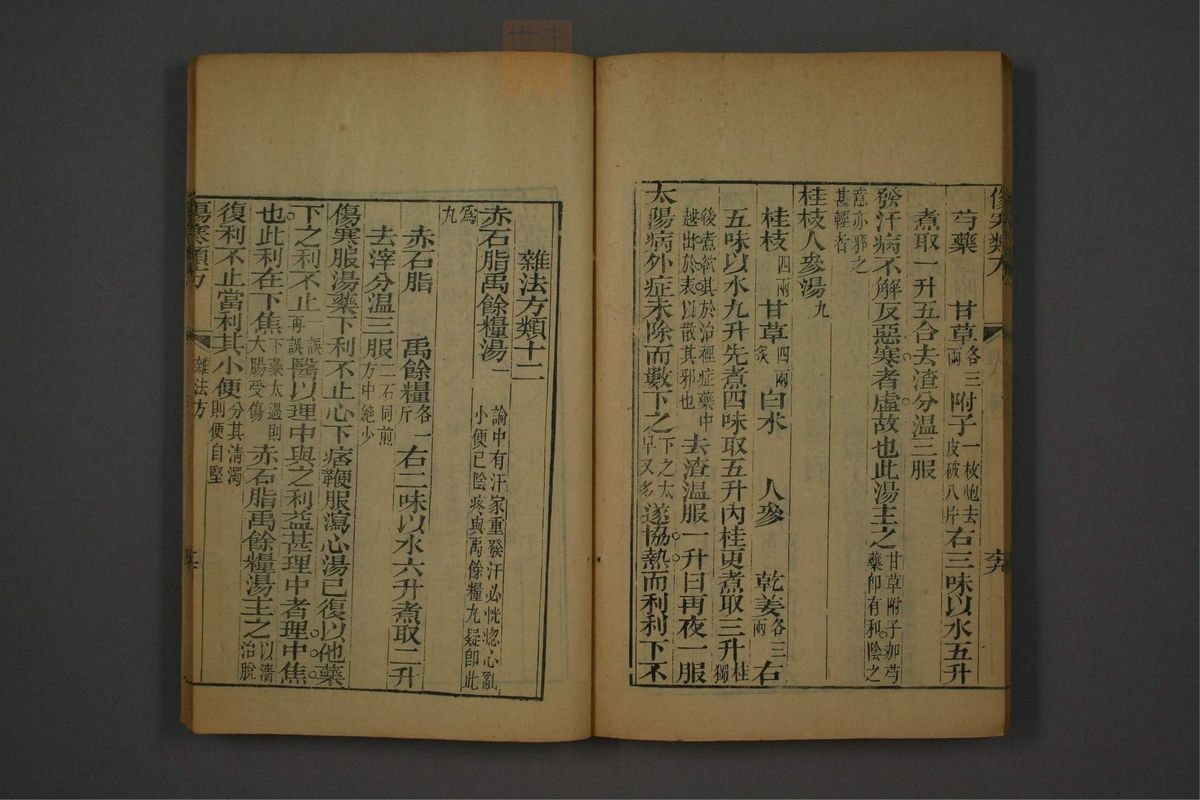 傷寒類方
芍藥　甘草各三兩　附子一枚炮去皮破八片　右三味以水五升
煮取一升五合去渣分溫三服
發汗病不解反惡寒者虛故也此湯主之甘草附子加芍藥卽有和陰之
意亦邪之甚輕者
桂枝人參湯九
桂枝四兩　甘草四兩炙　白朮　人參　乾姜各三兩　右
五味以水九升先煮四味取五升內桂更煮取三升桂獨
後煮欲其於治裡症藥中越出於表以散其邪也　去渣溫服一升日再夜一服
太陽病外症未除而數下之下之太早又多遂協熱而利利下不
雜法方類十二
赤石脂禹餘糧湯一　論中有汗家重發汗必恍惚心亂小便已陰疼與禹餘糧九疑卽此
爲九
赤石脂　禹餘糧各一斤　右二味以水六升煮取二升
去滓分溫三服二石同煎方中絶少
傷寒服湯藥下利不止心下痞鞕服瀉心湯已復以他藥
下之利不止一誤再誤醫以理中與之利益甚理中者理中焦
也此利在下焦下藥太過則大腸受傷赤石脂禹餘糧湯主之以濇治脫
復利不止當利其小便分其清濁則便自堅
傷寒類方　雜法方